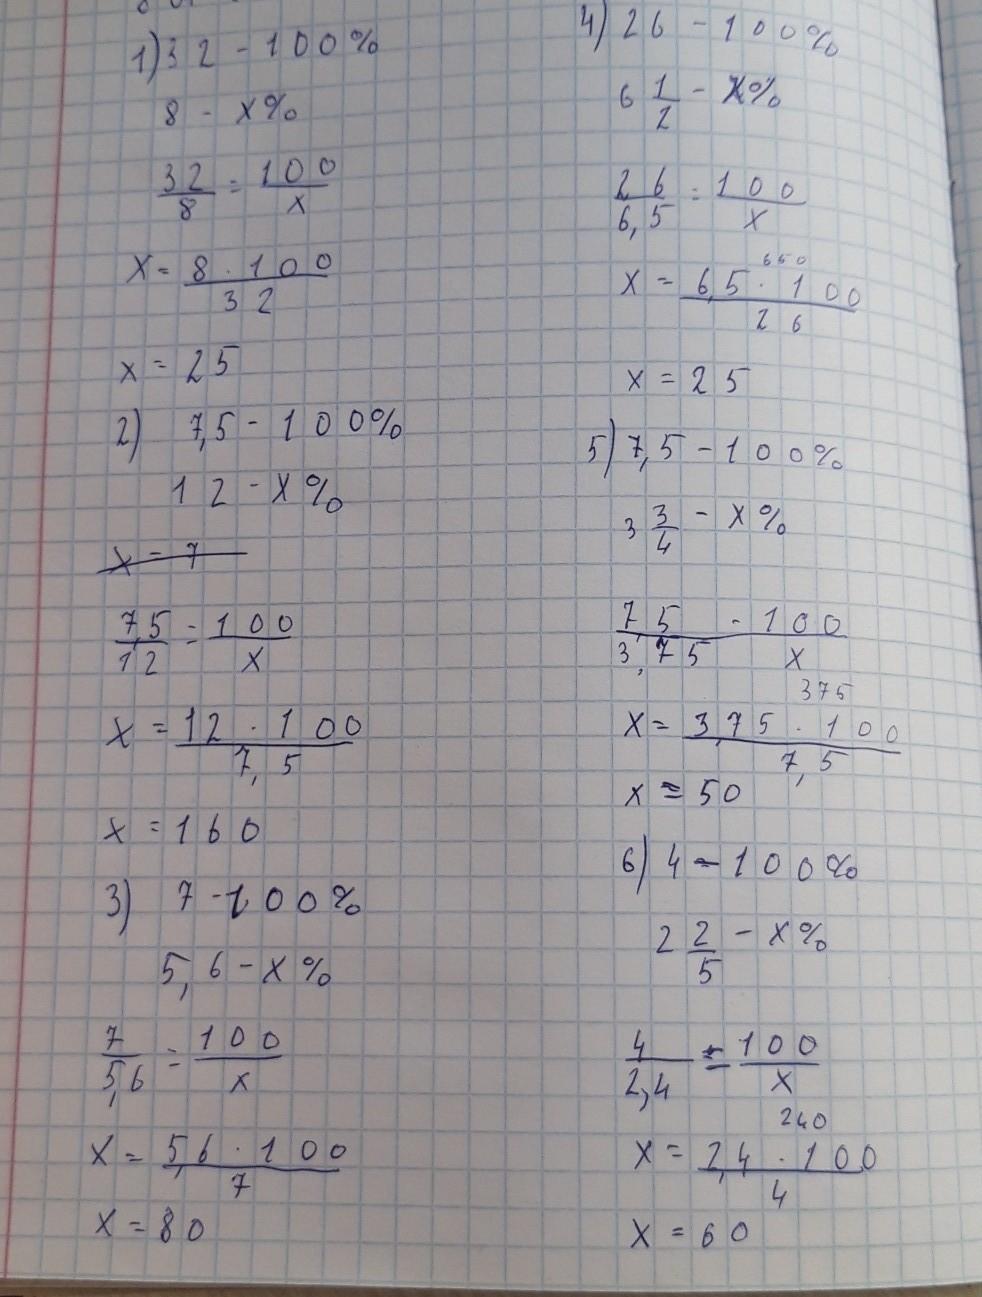 1) 32 - 100%
8 - x%
32/8 = 100/x
x = 8 · 100 / 32
x = 25
2) 7,5 - 100%
12 - x%
x = 7
7,5/12 = 100/x
x = 12 · 100 / 7,5
x = 160
3) 7 - 100%
5,6 - x%
7/5,6 = 100/x
x = 5,6 · 100 / 7
x = 80
4) 26 - 100%
6 1/2 - x%
26/6,5 = 100/x
650
x = 6,5 · 100 / 26
x = 25
5) 7,5 - 100%
3 3/4 - x%
7,5/3,75 - 100/x
375
x = 3,75 · 100 / 7,5
x = 50
6) 4 - 100%
2 2/5 - x%
4/2,4 = 100/x
240
x = 2,4 · 100 / 4
x = 60